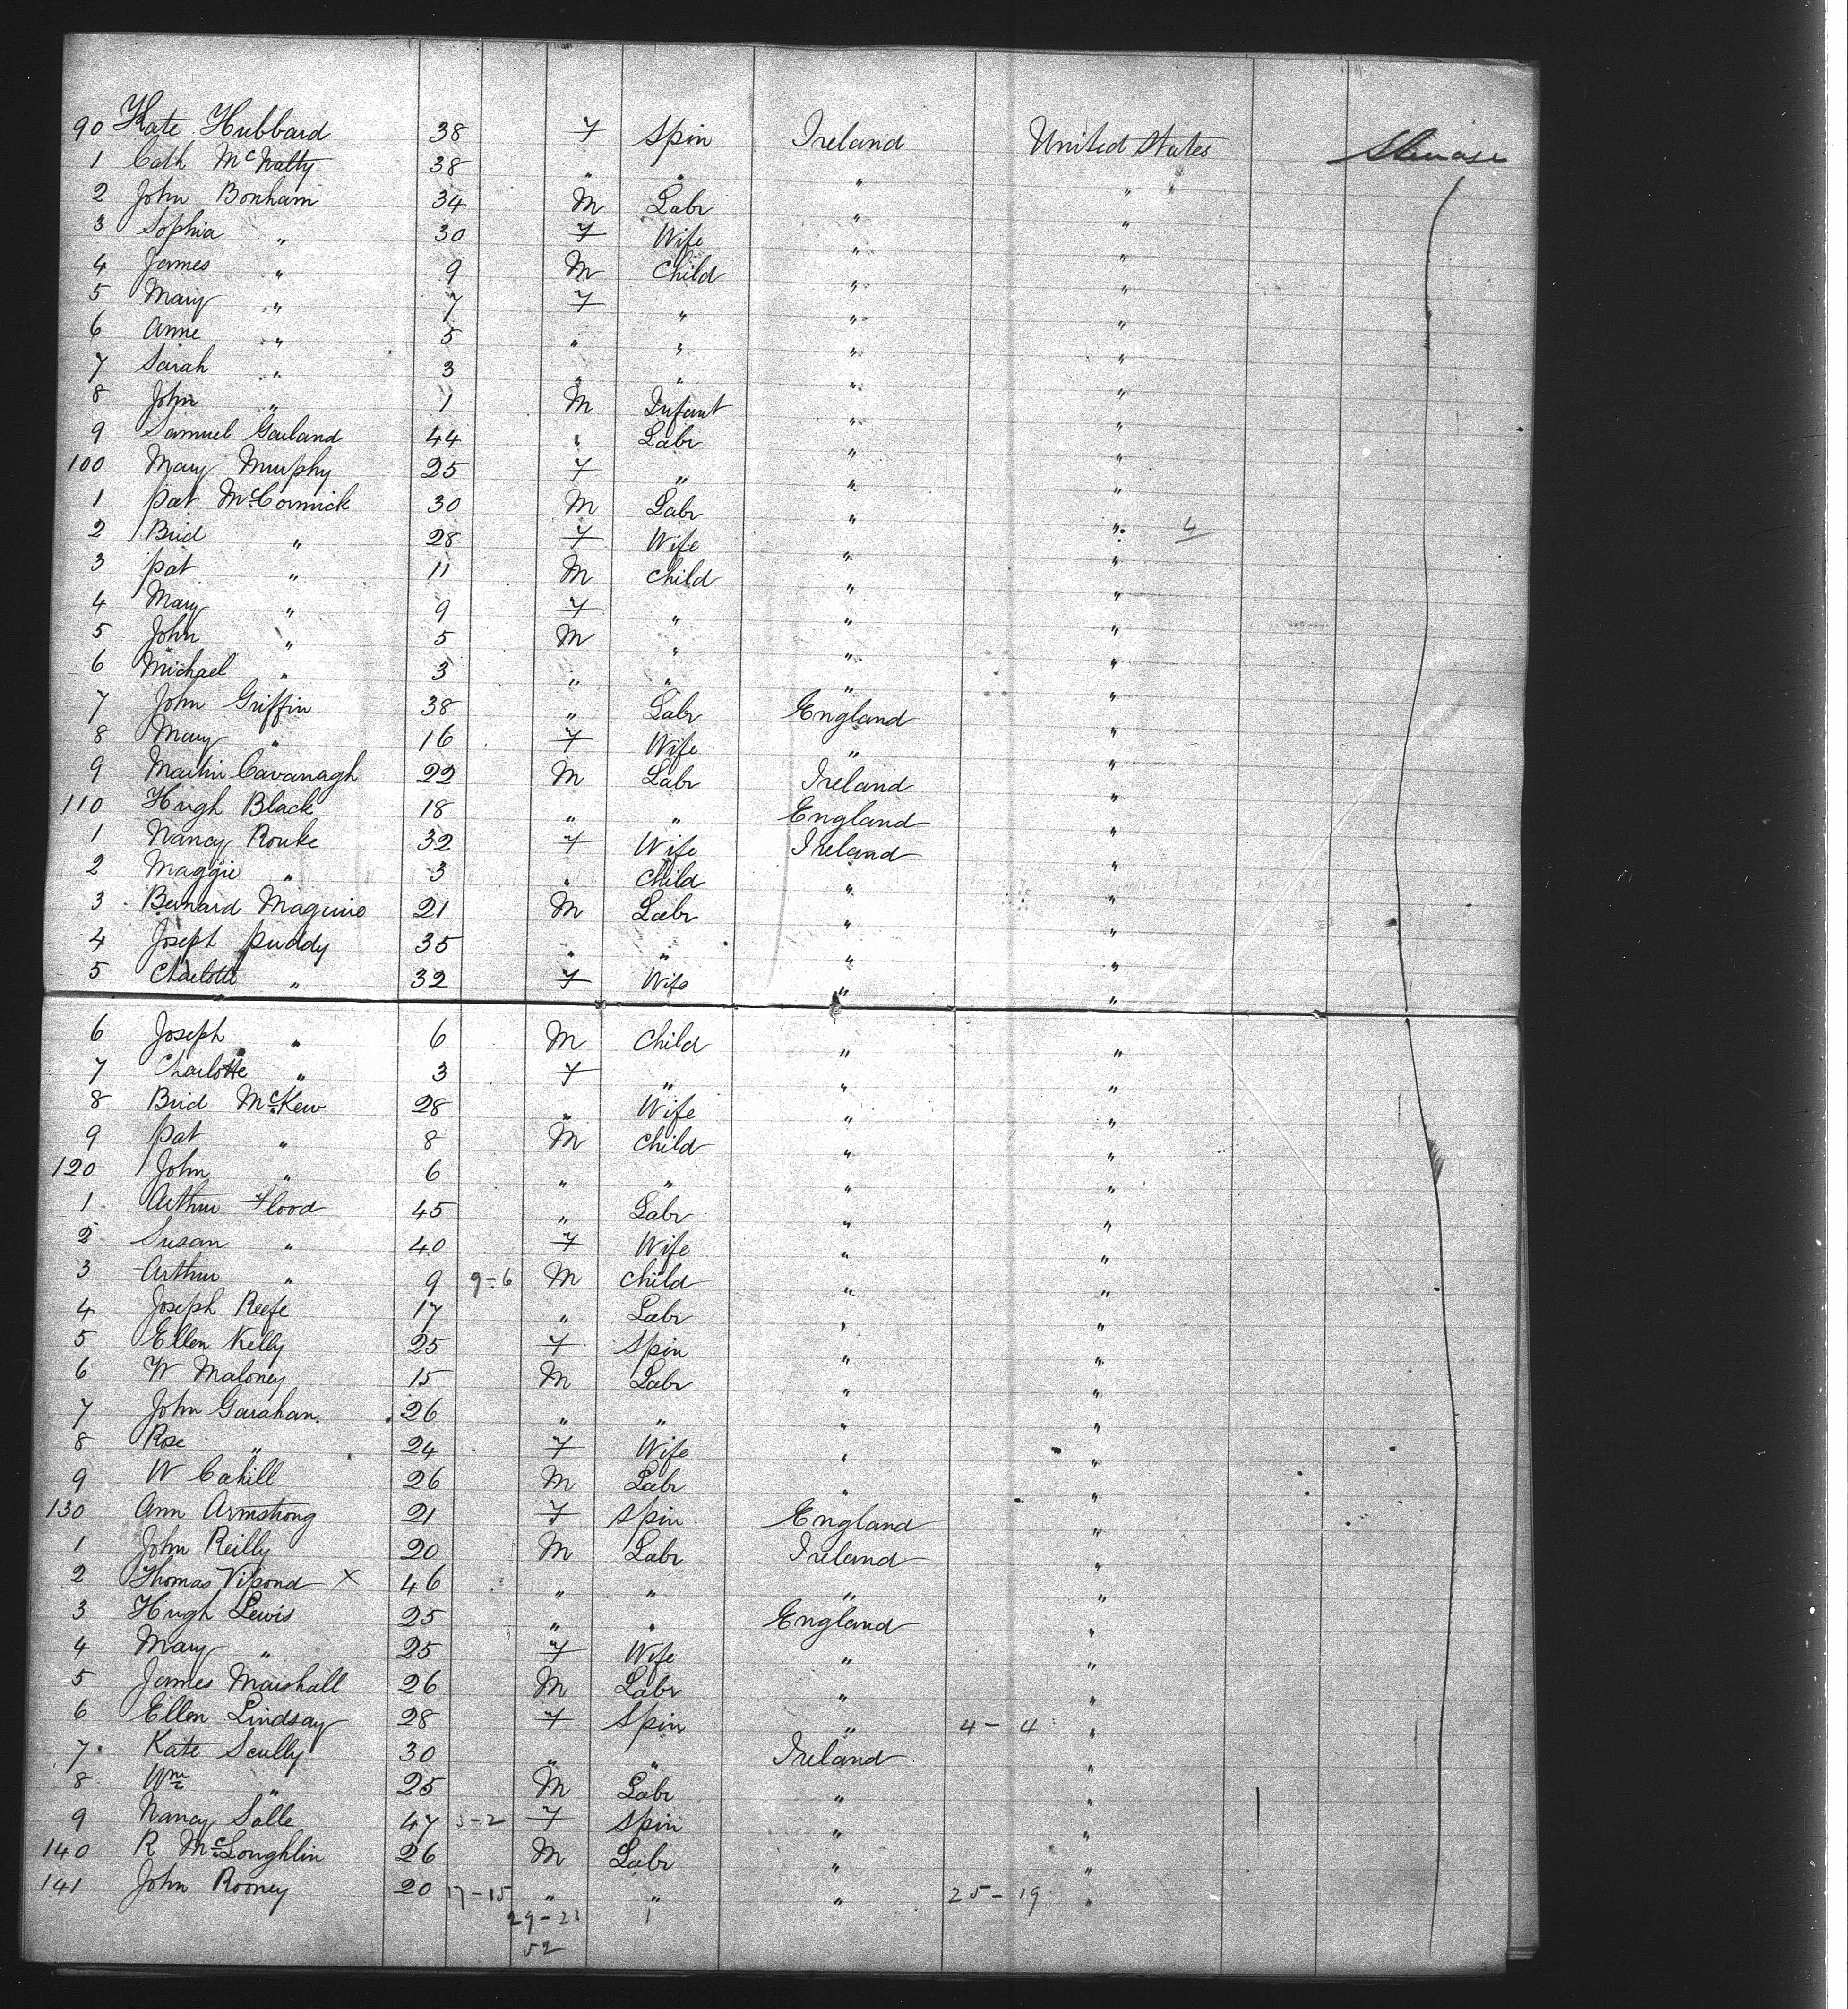 90 Kate Hubbard 38 F Spin Ireland United States
1 Cath McNalty 38 " " " "
2 John Bonham 34 M Labr " "
3 Sophia " 30 F Wife " "
4 James " 9 M Child " "
5 Mary " 7 F " " "
6 Anne " 5 " " " "
7 Sarah " 3 " " " "
8 John " 1 M Infant " "
9 Samuel Garland 44 " Labr " "
100 Mary Murphy 25 F " " "
1 Pat McCormick 30 M Labr " " 4
2 Brid " 28 F Wife " "
3 Pat " 11 M Child " "
4 Mary " 9 F " " "
5 John " 5 M " " "
6 Michael " 3 " " " "
7 John Griffin 38 " Labr England "
8 Mary " 16 F Wife " "
9 Martin Cavanagh 22 M Labr Ireland "
110 Hugh Black 18 " " England "
1 Nancy Rourke 32 F Wife Ireland "
2 Maggie " 3 " Child " "
3 Bernard Maguire 21 M Labr " "
4 Joseph Puddy 35 " " " "
5 Charlotte " 32 F Wife " "
6 Joseph " 6 M Child " "
7 Charlotte " 3 F " " "
8 Brid McKew 28 " Wife " "
9 Pat " 8 M Child " "
120 John " 6 " " " "
1 Arthur Flood 45 " Labr " "
2 Susan " 40 F Wife " "
3 Arthur " 9 9-6 M Child " "
4 Joseph Reefe 17 " Labr " "
5 Ellen Kelly 25 F Spin " "
6 W Maloney 15 M Labr " "
7 John Garahan 26 " " " "
8 Rose " 24 F Wife " "
9 W Cahill 26 M Labr " "
130 Ann Armstrong 21 F Spin England "
1 John Reilly 20 M Labr Ireland "
2 Thomas Vipond X 46 " " " "
3 Hugh Lewis 25 " " England "
4 Mary " 25 F Wife " "
5 James Marshall 26 M Labr " "
6 Ellen Lindsay 28 F Spin " 4-4 "
7 Kate Scully 30 " " Ireland "
8 Wm " 25 M Labr " "
9 Nancy Salle 47 3-2 F Spin " "
140 R McLoughlin 26 M Labr " "
141 John Rooney 20 17-15 " " " 25-19 "
29-21
52